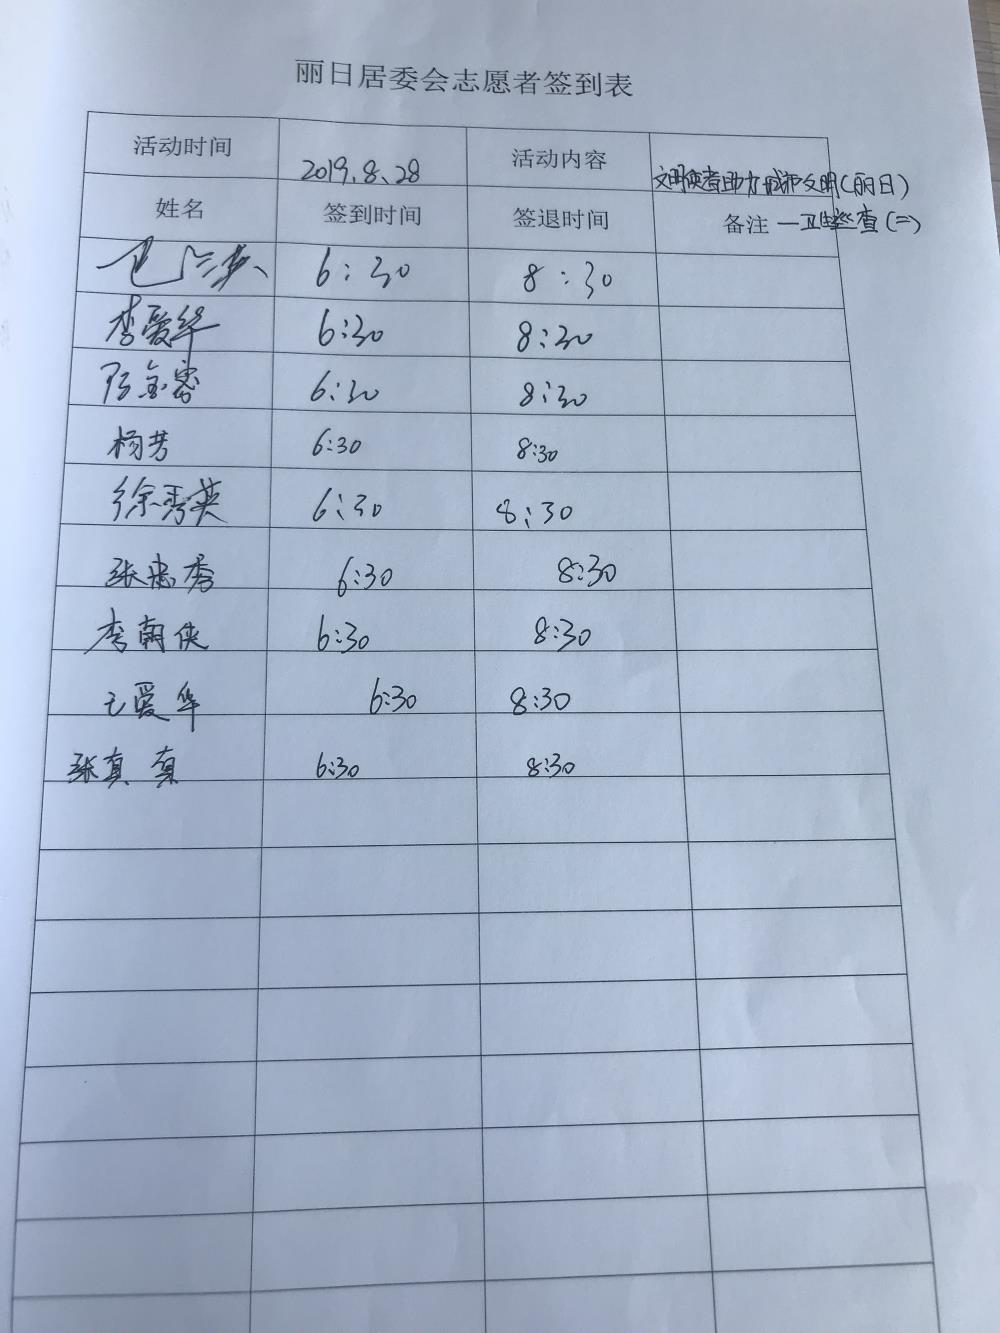 丽日居委会志愿者签到表
活动时间 2019.8.28 活动内容 文明使者助力城市文明(丽日)
姓名 签到时间 签退时间 备注 一卫生巡查(二)
6:30 8:30
李爱华 6:30 8:30
6:30 8:30
杨芳 6:30 8:30
徐秀英 6:30 8:30
张忠秀 6:30 8:30
李朝侠 6:30 8:30
爱华 6:30 8:30
张真真 6:30 8:30